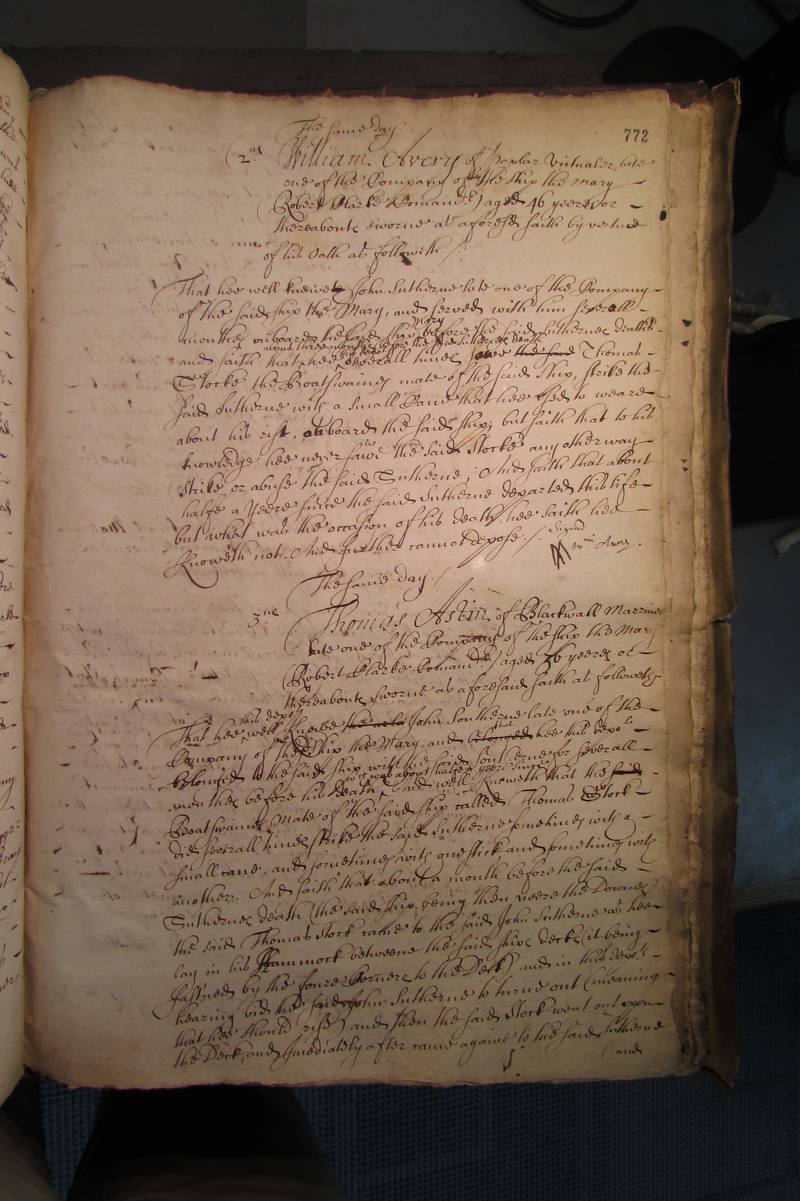 The same day.
772
2nd William Avery of Poplar Victualer, late
one of the Company of the ship the Mary
(Robert Clarke Comander) aged 46 yeeres or
thereabouts sworne as aforesd saith by vertue
of his oath as followith.
That hee well knewe John Sutherne late one of the Company
of the said ship the Mary, and served with him severall
monthes onboard the said ship before the said Suthernes death
Mary
about three monthes before the said Suthernes death
and saith that hee severall times sawe the said Thomas
Stocke the Boatswaines mate of the said ship, strike the
said Sutherne with a small Cane that hee used to weare
about his rist, onboard the said ship, but saith that to his
knowledge hee never sawe the said Stocke any other way
strike or abuse the said Sutherne, And saith that about
halfe a yeere since the said Sutherne departed this life
but what was the occasion of his death hee saith hee
knoweth not. And further cannot depose.
Signed
Wm Avery.
The same day.
3ne Thomas Astin of Blackwall Marriner
late one of the Company of the ship the Mary
(Robert Clarke Comander) aged 36 yeeres or
thereabouts sworne as aforesaid saith as followeth
this depot
That hee well knewe John Southerne late one of the
Company of the ship the Mary, and belonged that hee this depot
belonged to the said ship with the said Southerne for severall
wch was about halfe a yeere since
monthes before his death, And well knoweth that the said
Boatswaines Mate of the said ship called Thomas Stock
did severall times strike the said Sutherne sometimes with a
small cane, and sometimes with one stick and sometimes with
another. And saith that about a month before the said
Suthernes death (the said ship being then neere the Downes)
the said Thomas Stock came to the said John Sutherne as hee
lay in his Hammock betweene the said ships decks (it being
fastned by the foure Corners to the Deck) and in this depots
hearing bid the said John Sutherne to turne out (meaning
that hee should rise) and then the said Stock went out upon
the Deck, and Imediately after came againe to the said Sutherne
and